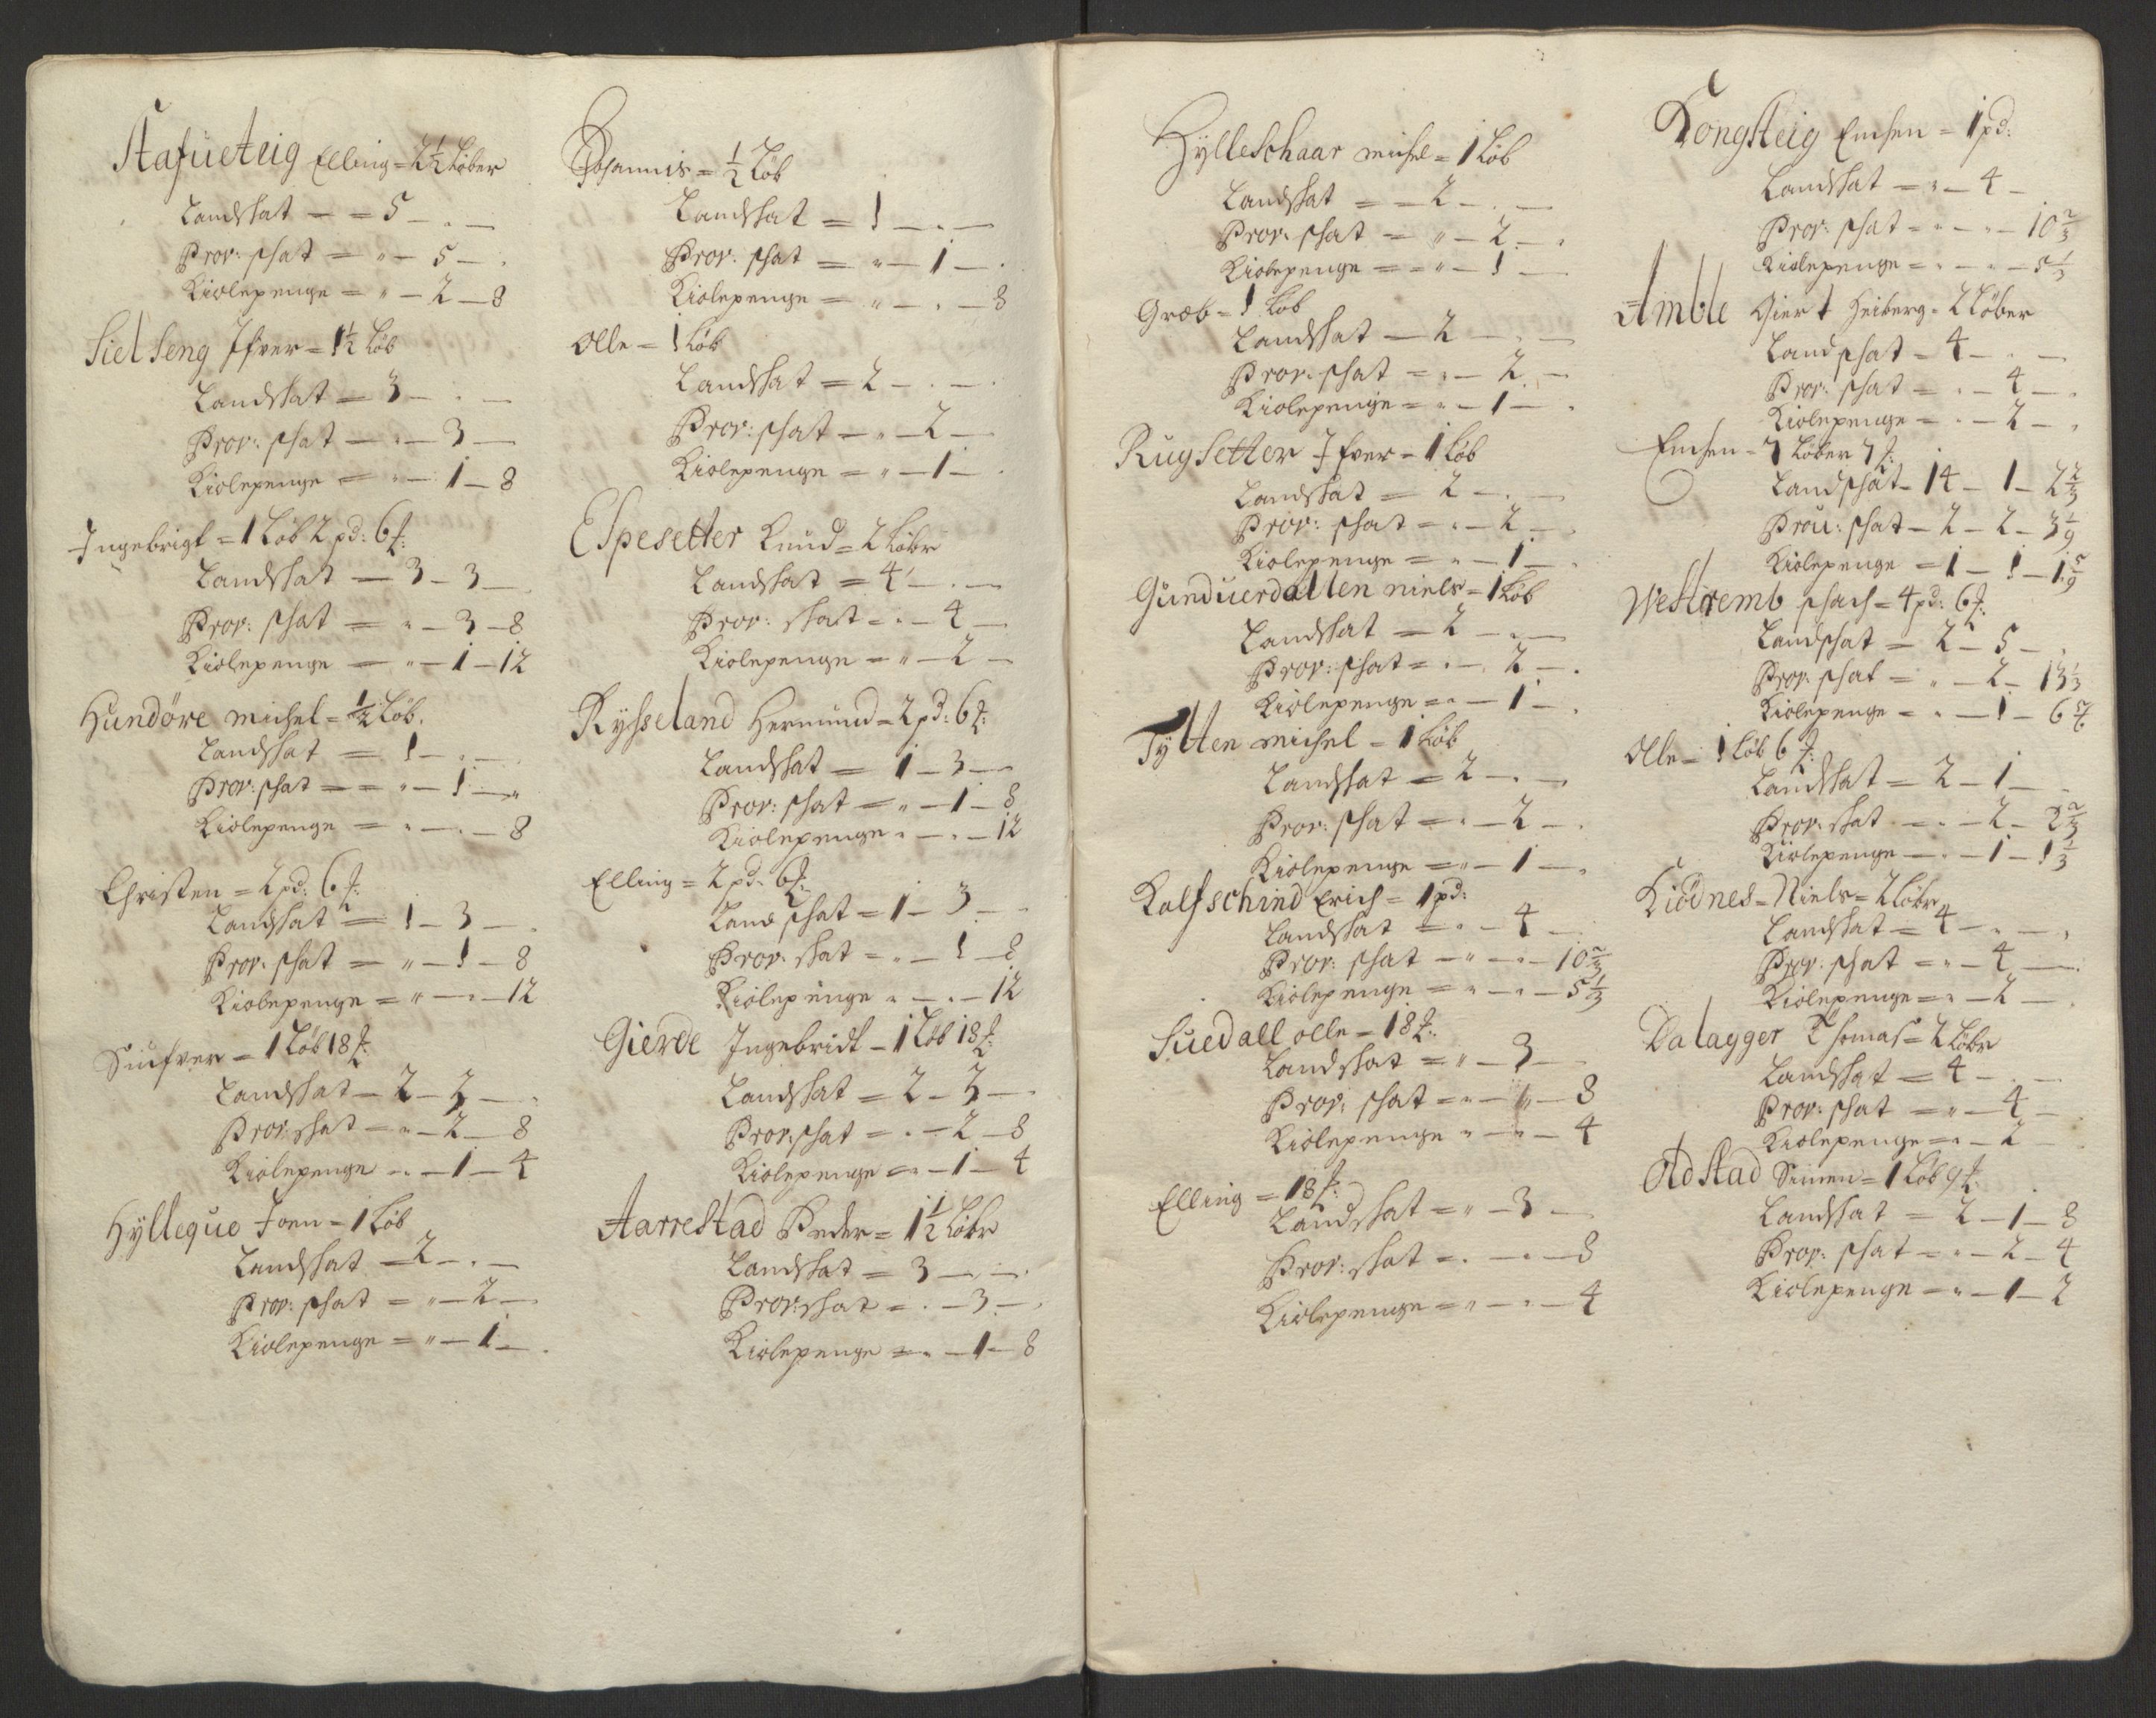 Stafueteig Elling = 2½ Løber
Landskat — = 5 — . —
Prov: skat = " — 5 — .
Kiølepenge = " — 2 — 8
Sielseng Ifver = 1½ Løb
Landskat = 3 — . —
Prov: skat — " — 3 —
Kiølepenge = " — 1 — 8
Ingebrigt = 1 Løb 2 pd: 6 ℔:
Landskat — 3 — 3 — .
Prov: skat = " — 3 — 8
Kiølepenge — " — 1 — 12
Hundøre Michel = ½ Løb.
Landskat = 1 — . —
Prov: skat = = " — 1 — "
Kiølepenge = " — . — 8
Christen = 2 pd: 6 ℔:
Landskat = 1 — 3 — .
Prov: skat = " — 1 — 8
Kiølepenge = " — " — 12
Siufver = 1 Løb 18 ℔:
Landskat — 2 — 3 — .
Prov: skat = " — 2 — 8
Kiølepenge = " — 1 — 4
Hylleque Joen = 1 Løb
Landskat — 2 — . —
Prov: skat = " — 2 —
Kiølepenge = " — 1 — .
Johannis = ½ Løb
Landskat = 1 — . —
Prov: skat = " — 1 — .
Kiølepenge = " — . — 8
Olle = 1 Løb
Landskat = 2 — . — .
Prov: skat — " — 2 —
Kiølepenge = " — 1 — .
Espesetter Knud = 2 Løbr
Landskat = 4 — . —
Prov: skat = " — 4 —
Kiølepenge = " — 2 —
Rysseland Hermund = 2 pd: 6 ℔:
Landskat = 1 — 3 —
Prov: skat = " — 1 — 8
Kiølepenge " — " — 12
Elling = 2 pd: 6 ℔:
Landskat = 1 — 3 — .
Prov: skat = " — 1 — 8
Kiølepenge " — " — 12
Gierde Ingebridt — 1 Løb 18 ℔:
Landskat = 2 — 3 —
Prov: skat = . — 2 — 8
Kiølepenge = " — 1 — 4
Aarrestad Peder = 1½ Løbr
Landskat = 3 — . — .
Prov: skat = . — 3 — .
Kiølepenge = " — 1 — 8
Hylleschaar Michel = 1 Løb
Landskat = — 2 — . —
Prov: skat = " — 2 — .
Kiølepenge = = " — 1 —
Græb = 1 Løb
Landskat — 2 — . —
Prov: skat = " — 2 —
Kiølepenge = " — 1 — .
Rugsetter Ifver = 1 Løb
Landskat = 2 — . —
Prov: skat = " — 2 — .
Kiølepenge = " — 1 — .
Gunduerdallen Niels = 1 Løb
Landskat — 2 — . —
Prov: skat = " — 2 — .
Kiølepenge = " — 1 — .
Tytten Michel = 1 Løb
Landskat = 2 — . —
Prov: skat = " — 2 — .
Kiølepenge = " — 1 — .
Kalfschind Erich = 1 pd:
Landskat = " — 4 —
Prov: skat — " — " — 10⅔
Kiølepenge = " — " — 5⅓
Suedall Olle = 18 ℔:
Landskat = " — 3 —
Prov: skat = " — " — 8
Kiølepenge " — " — 4
Elling = 18 ℔:
Landskat = " — 3 —
Prov: skat = . — " — 8
Kiølepenge = " — " — 4
Kongsteig Enchen = 1 pd:
Landskat = " — 4 —
Prov: skat = " — " — 10⅔
Kiølepenge = " — " — 5⅓
Amble Giert Heiberg = 2 Løber
Landskat — 4 — . —
Prov: skat = " — 4 — .
Kiølepenge = " — 2 — .
Enchen = 7 Løber 7 ℔:
Landskat — 14 — 1 — 2⅔
Prou: skat — 2 — 2 — 3 1/9
Kiølepenge = 1 — 1 — 1 5/9
Westremb schach = 4 pd: 6 ℔:
Landskat = 2 — 5 — .
Prov: skat = " — 2 — 13⅓
Kiølepenge = " — 1 — 6
Olle = 1 Løb 6 ℔:
Landskat = 2 — 1 — .
Prov: skat — " — 2 — 2⅔
Kiølepenge — " — 1 — 1⅓
Kiødnes = Niels = 2 Løbr
Landskat = 4 — . — .
Prov: skat = " — 4 — .
Kiølepenge = " — 2 — .
Dalagger Thomas = 2 Løbr
Landskat = 4 — . —
Prov: skat = " — 4 —
Kiølepenge = " — 2 —
Odstad Simen = 1 Løb 9 ℔:
Landskat = 2 — 1 — 8
Prov: skat = " — 2 — 4
Kiølepenge = " — 1 — 2